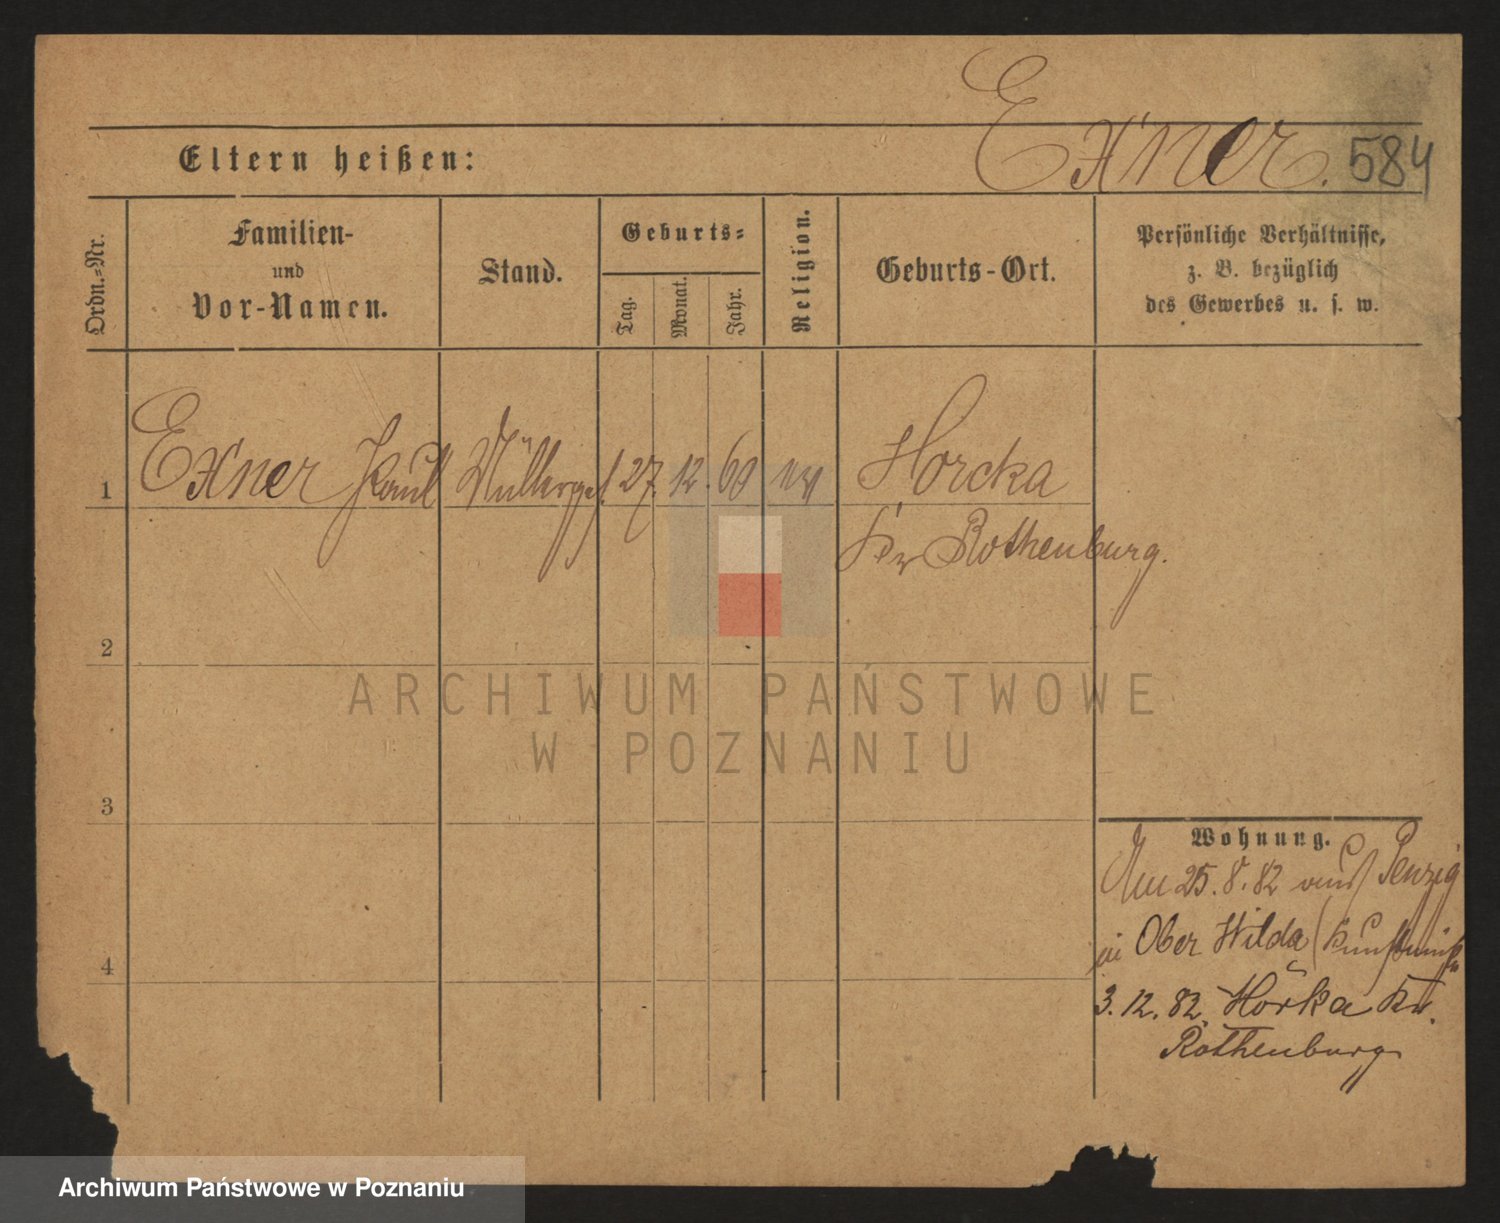 Exner. 584
Eltern heißen:
Ordn.-Nr.
Familien-
und
Vor-Namen.
Stand.
Geburts-
Tag.
Monat.
Jahr.
Religion.
Geburts-Ort.
Persönliche Verhältnisse,
z. B. bezüglich
des Gewerbes u. s. w.
1 Exner Paul Müllerges. 27. 12. 60 ev Horcka
Kr Rothenburg.
2
3
4
ARCHIWUM PAŃSTWOWE
W POZNANIU
Wohnung.
Am 25. 8. 82 aus Penzig
in Ober Wilda
3. 12. 82. Hörka Kr.
Rothenburg
Archiwum Państwowe w Poznaniu